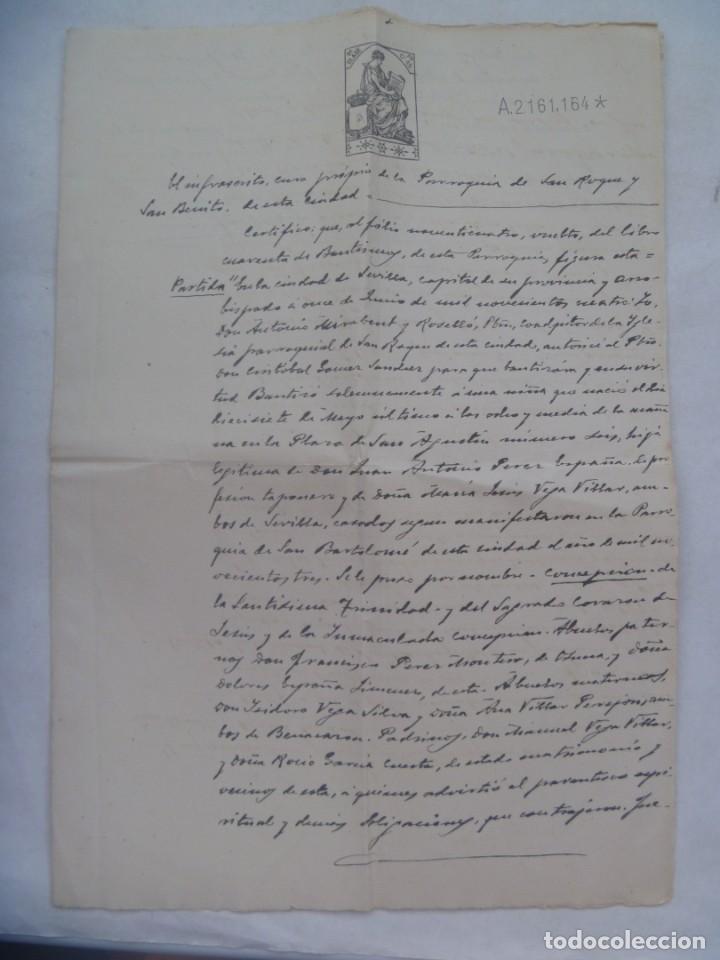 A.2161.164*
El infrascrito, cura própio de la Parroquia de San Roque y
San Benito, de esta Ciudad
Certifico: que, al fólio noventicuatro, vuelto, del libro
cuarenta de Bautismos, de esta Parroquia, figura esta=
Partida "En la ciudad de Sevilla, capital de su provincia y Arzo-
bispado á once de Junio de mil novecientos cuatro: Yo,
Don Antonio Mirabent y Roselló, Pbro, coadjutor de la Igle-
sia parroquial de San Roque de esta ciudad, autoricé al Pbro.
Don Cristóbal Gomez Sanchez para que bautizára y en su vir-
tud Bautizó solemnemente á una niña que nació el dia
Diecisiete de Mayo último á las ocho y media de la maña-
na en la Plaza de San Agustin número seis, hija
legitima de Don Juan Antonio Perez España, de pro-
fesion taponero y de Doña María Jesús Vega Villar, am-
bos de Sevilla, casados segun manifestaron en la Parro-
quia de San Bartolomé de esta ciudad el año de mil no-
vecientos tres. Se le puso por nombre - Concepcion - de
la Santisima Trinidad - y del Sagrado Corazon de
Jesús y de la Inmaculada Concepcion. Abuelos pater-
nos Don Francisco Perez Montero, de Osuna, y Doña
Dolores España Jimenez, de esta. Abuelos maternos,
Don Isidoro Vega Silva y Doña Ana Villar Perejon, am-
bos de Benacazon. Padrinos, Don Manuel Vega Villar,
y Doña Rocio Garcia Cuesta, de estado matrimonio y
vecinos de esta, á quienes advirtió el parentesco espi-
ritual y demás obligaciones, que contrajeron. Fue-
todocoleccion.net